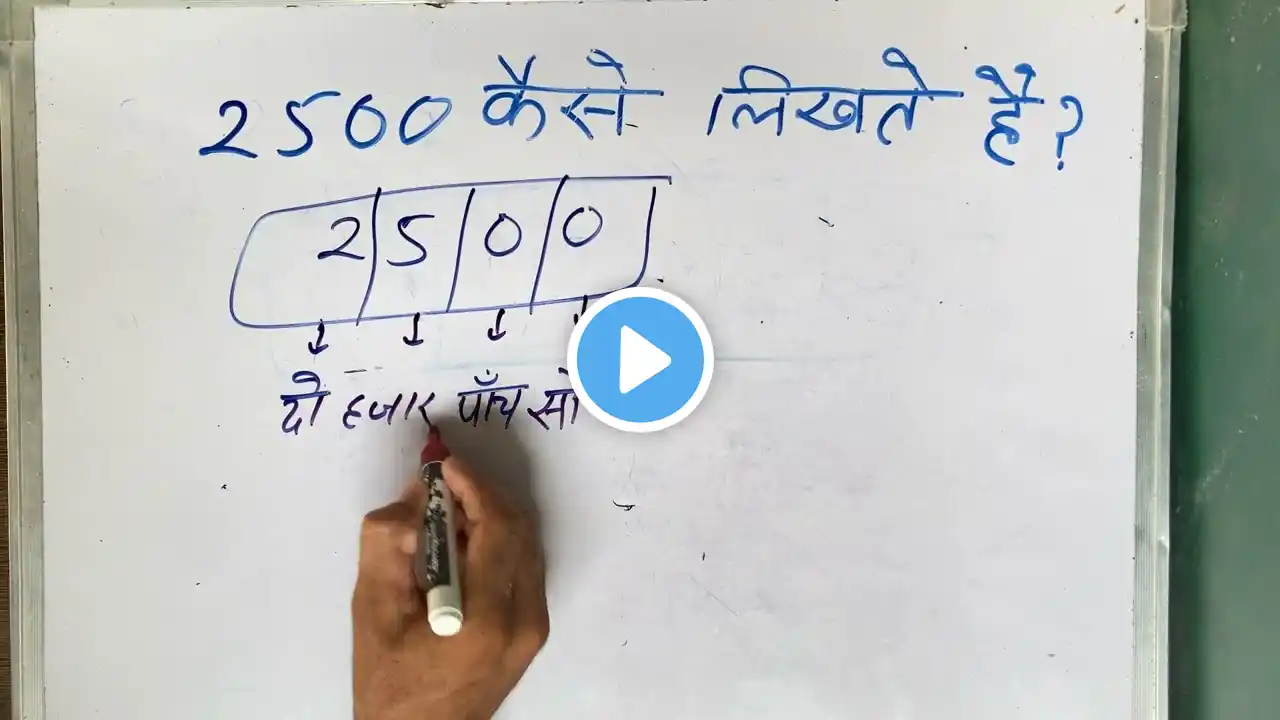 2500 कैसे लिखते है?
2 5 0 0
दो हजार पाँच सो